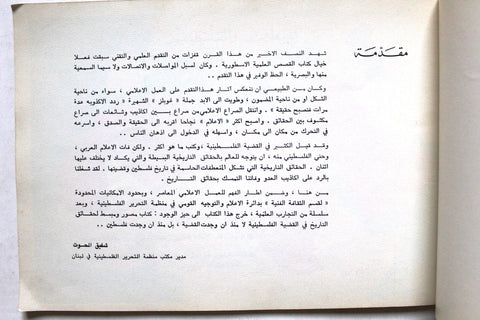 مقدّمة
شهد النصف الاخير من هذا القرن قفزات من التقدم العلمي والتقني سبقت فعلا
خيال كتاب القصص العلمية الاسطورية . وكان لسبل المواصلات والاتصالات ولا سيما السمعية
منها والبصرية ، الحظ الوفير في هذا التقدم . .
وكان من الطبيعي ان تنعكس آثار هذا التقدم على العمل الاعلامي ، سواء من ناحية
الشكل او من ناحية المضمون ، وطويت الى الابد جملة « غوبلز » الشهيرة « ردد الاكذوبة عدة
مرات فتصبح حقيقة » . وانتقل الصراع الاعلامي من صراع بين اكاذيب وشائعات الى صراع
مكشوف بين الحقائق . واصبح اكثر « الاعلام » نجاحا اقربه الى الحقيقة والصدق ، واسرعه
في التحرك من مكان الى مكان ، واسهله في الدخول الى اذهان الناس . .
وقد قيل الكثير في القضية الفلسطينية ، وكتب ما هو اكثر . ولكن فات الاعلام العربي ،
وحتى الفلسطيني منه ، ان يتوجه للعالم بالحقائق التاريخية البسيطة والتي يكاد لا يختلف عليها
اثنان . الحقائق التاريخية التي تشكل المنعطفات الحاسمة في تاريخ فلسطين وقضيتها . لقد شغلنا
بالرد على اكاذيب العدو وفاتنا التمسك بحقائق التاريخ .
من هنا ، وضمن اطار الفهم للعمل الاعلامي المعاصر ، وبحدود الامكانيات المحدودة
« لقسم الثقافة الفنية » بدائرة الاعلام والتوجيه القومي في منظمة التحرير الفلسطينية ، وبعد
سلسلة من التجارب العلمية ، خرج هذا الكتاب الى حيز الوجود : كتاب مصور ومبسط لحقائق
التاريخ في القضية الفلسطينية لا منذ ان وجدت القضية ، بل منذ ان وجدت فلسطين . .
شفيق الحوت
مدير مكتب منظمة التحرير الفلسطينية في لبنان